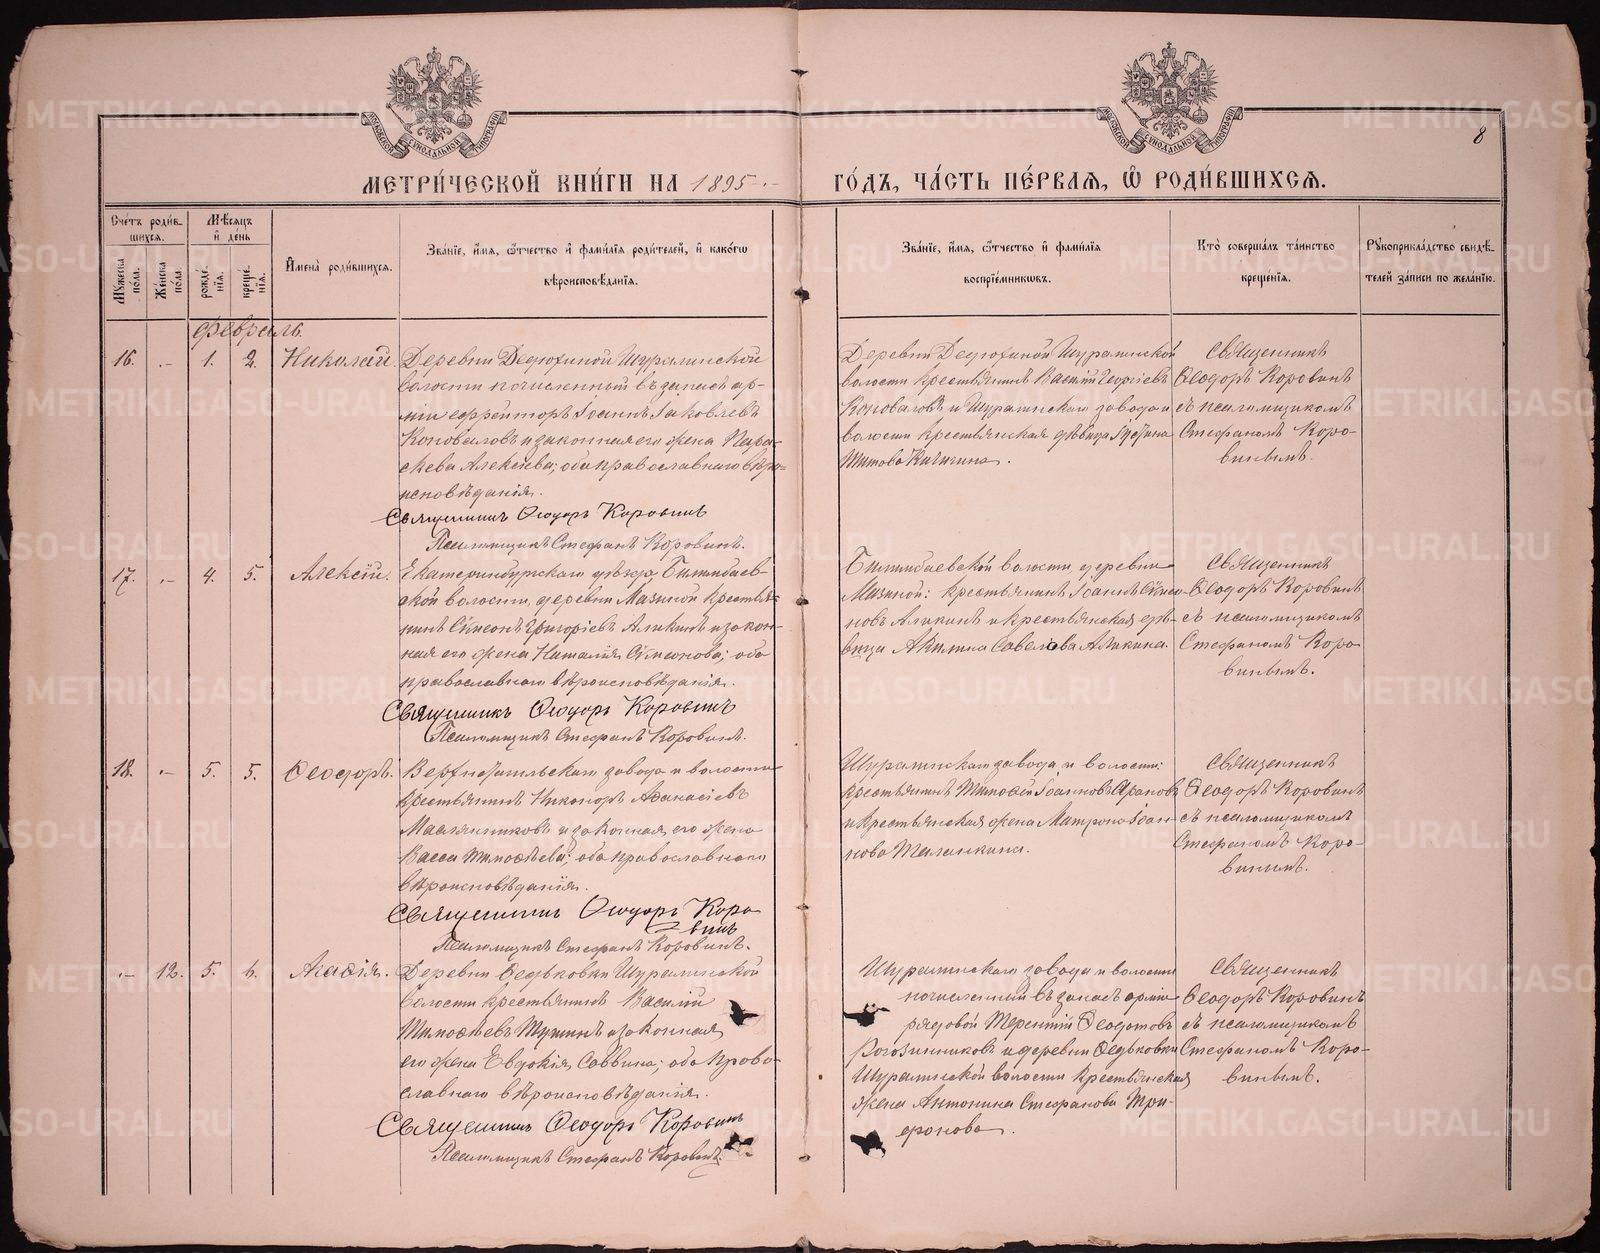 МОСКОВСКОЙ СѴНОДАЛЬНОЙ ТИПОГРАФІИ
МОСКОВСКОЙ СѴНОДАЛЬНОЙ ТИПОГРАФІИ
8
МЕТРИ́ЧЕСКОЙ КНИ́ГИ НА 1895 ГО́ДЪ, ЧА́СТЬ ПЕ́РВАЯ, Ѽ РОДИ́ВШИХСЯ.
Сче́тъ роди́вшихся.
Мꙋжеска по́ла.
Же́нска по́ла.
Мѣ́сяцъ и҆ де́нь
рожде́нїя.
креще́нїя.
И҆мена̀ роди́вшихся.
Зва́нїе, и҆́мя, ѻ҆́тчество и҆ фами́лїя роди́телей, и҆ како́гѡ вѣроисповѣ́данїя.
Зва́нїе, и҆́мя, ѻ҆́тчество и҆ фами́лїя воспрїе́мникѡвъ.
Кто̀ соверша́лъ та́инство креще́нїя.
Рꙋкоприкла́дство свидѣ́телей за́писи по жела́нїю.
Февраль.
16. .- 1. 2. Николай.
Деревни Дедюхиной Шуралинской
волости почисленный въ запасъ ар-
міи ефрейторъ Іоаннъ Іаковлевъ
Коноваловъ и законная его жена Пара-
скева Алексіева; оба православнаго вѣро-
исповѣданія.
Священникъ Ѳеодоръ Коровинъ
Псаломщикъ Стефанъ Коровинъ.
Деревни Дедюхиной Шуралинской
волости крестьянинъ Василій Георгіевъ
Коноваловъ и Шуралинскаго завода и
волости крестьянская дѣвица Іустина
Титова Кичигина.
Священникъ
Ѳеодоръ Коровинъ
съ псаломщикомъ
Стефаномъ Коро-
винымъ.
17. .- 4. 5. Алексій.
Екатеринбургскаго уѣзда, Билимбаев-
ской волости, деревни Мазиной крестья-
нинъ Сѵмеонъ Григоріевъ Аликинъ и закон-
ная его жена Наталія Сѵмеонова; оба
православнаго вѣроисповѣданія.
Священникъ Ѳеодоръ Коровинъ
Псаломщикъ Стефанъ Коровинъ.
Билимбаевской волости, деревни
Мазиной: крестьянинъ Іоаннъ Сѵмео-
новъ Аликинъ и крестьянская дѣ-
вица Акилина Савелова Аликина.
Священникъ
Ѳеодоръ Коровинъ
съ псаломщикомъ
Стефаномъ Коро
винымъ.
18. .- 5. 5. Ѳеодоръ.
Верхнетагильскаго завода и волости
крестьянинъ Никоноръ Аѳанасіевъ
Масляниковъ и законная его жена
Васса Тимоѳѣева; оба православнаго
вѣроисповѣданія.
Священникъ Ѳеодоръ Коро
винъ
Псаломщикъ Стефанъ Коровинъ.
Шуралинскаго завода и волости:
крестьянинъ Тимоѳей Іоанновъ Араповъ
и крестьянская жена Матрона Іоан-
нова Таланкина.
Священникъ
Ѳеодоръ Коровинъ
съ псаломщикомъ
Стефаномъ Коро-
винымъ.
.- 12. 5. 6. Агаѳія.
Деревни Ѳедьковки Шуралинской
волости крестьянинъ Василій
Тимоѳѣевъ и законная
его жена Евдокія Саввина; оба право-
славнаго вѣроисповѣданія.
Священникъ Ѳеодоръ Коровинъ
Псаломщикъ Стефанъ Коровинъ.
Шуралинскаго завода и волости
почисленный въ запасъ арміи
рядовой Терентій Ѳеодотовъ
Рогозинниковъ и деревни Ѳедьковки
Шуралинской волости крестьянская
жена Антонина Стефанова Три-
фонова.
Священникъ
Ѳеодоръ Коровинъ
съ псаломщикомъ
Стефаномъ Коро-
винымъ.
METRIKI.GASO-URAL.RU